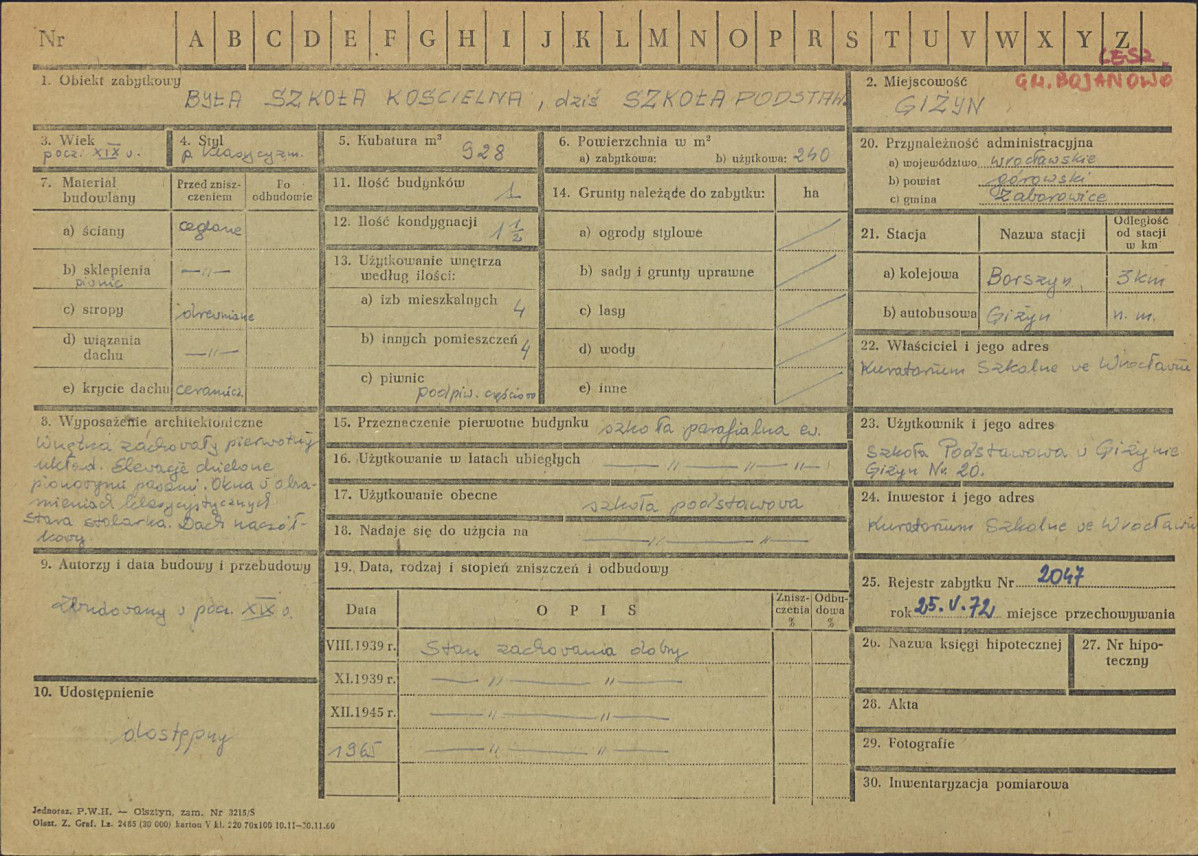 Nr A B C D E F G H I J K L M N O P R S T U V W X Y Z
LESZ.
GM. BOJANOWO
1. Obiekt zabytkowy
BYŁA SZKOŁA KOŚCIELNA, dziś SZKOŁA PODSTAW.
2. Miejscowość
GIŻYN
3. Wiek
pocz. XIX w.
4. Styl
p. klasycyzm.
5. Kubatura m³
928
6. Powierzchnia w m²
a) zabytkowa: b) użytkowa: 240
7. Materiał budowlany
Przed zniszczeniem
Po odbudowie
a) ściany ceglane
b) sklepienia —〃—
piwnic
c) stropy drewniane
d) wiązania dachu —〃—
e) krycie dachu ceramicz.
8. Wyposażenie architektoniczne
Wnętrza zachowały pierwotny
układ. Elewacje dzielone
pionowymi pasami. Okna w obra-
mieniach klasycystycznych
Stara stolarka. Dach naczół-
kowy
9. Autorzy i data budowy i przebudowy
Zbudowany w pocz. XIX w.
10. Udostępnienie
dostępny
11. Ilość budynków 1
12. Ilość kondygnacji 1 1/2
13. Użytkowanie wnętrza
według ilości:
a) izb mieszkalnych 4
b) innych pomieszczeń 4
c) piwnic
podpiw. częściow
14. Grunty należące do zabytku: ha
a) ogrody stylowe
b) sady i grunty uprawne
c) lasy
d) wody
e) inne
15. Przeznaczenie pierwotne budynku szkoła parafialna ew.
16. Użytkowanie w latach ubiegłych —〃— —〃—
17. Użytkowanie obecne
szkoła podstawowa
18. Nadaje się do użycia na —〃— —〃—
19. Data, rodzaj i stopień zniszczeń i odbudowy
Data OPIS Zniszczenia % Odbudowa %
VIII.1939 r. Stan zachowania dobry
XI.1939 r. —〃— 〃—
XII.1945 r. —〃— 〃—
1965 —〃— 〃—
20. Przynależność administracyjna
a) województwo wrocławskie
b) powiat górowski
c) gmina Zaborowice
21. Stacja Nazwa stacji Odległość od stacji w km
a) kolejowa Borszyn 3 km
b) autobusowa Giżyn n. m.
22. Właściciel i jego adres
Kuratorium Szkolne we Wrocławiu
23. Użytkownik i jego adres
Szkoła Podstawowa w Giżynie
Giżyn Nr. 20.
24. Inwestor i jego adres
Kuratorium Szkolne we Wrocławiu
25. Rejestr zabytku Nr 2047
rok 25.V.72 miejsce przechowywania
26. Nazwa księgi hipotecznej
27. Nr hipo-
teczny
28. Akta
29. Fotografie
30. Inwentaryzacja pomiarowa
Jednoraz. P.W.H. — Olsztyn, zam. Nr 3215/S
Olszt. Z. Graf. Lz. 2485 (30 000) karton V kl. 220 70x100 10.11—30.11.60